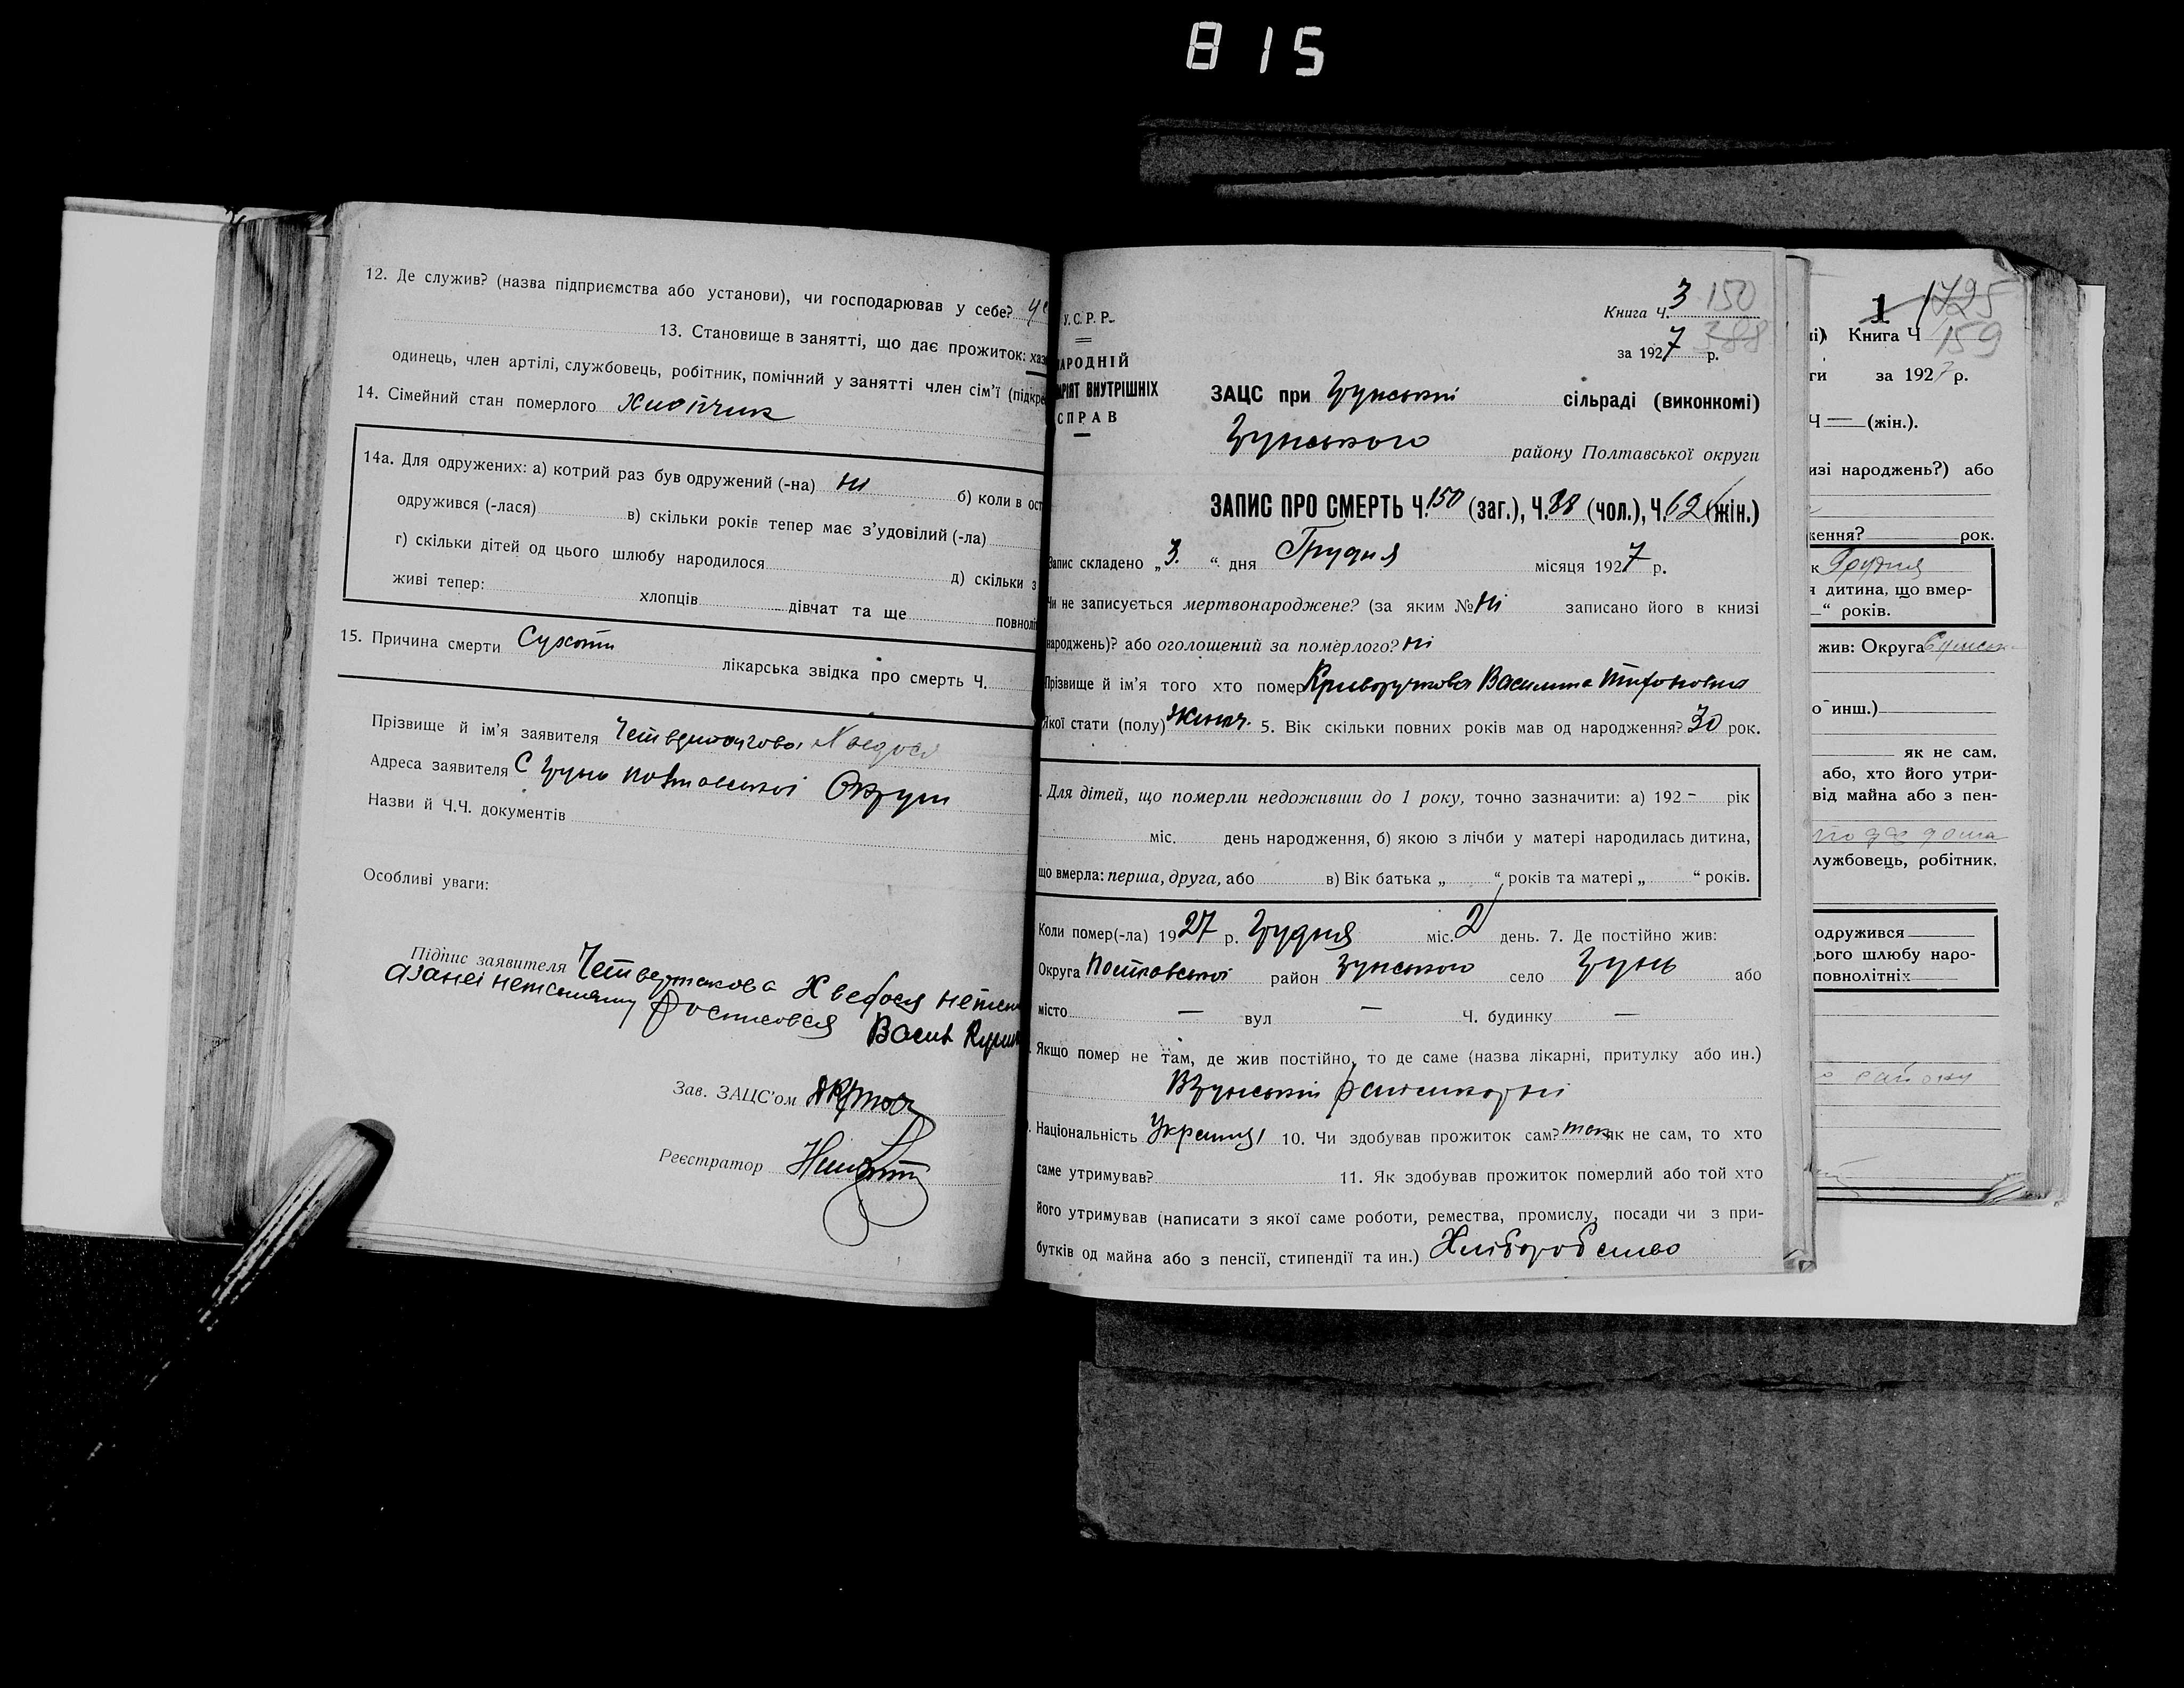 815
12. Де служив? (назва підприємства або установи), чи господарював у себе?
13. Становище в занятті, що дає прожиток: хаз
одинець, член артілі, службовець, робітник, помічний у занятті член сім'ї (підкре
14. Сімейний стан померлого Хлопчик
14а. Для одружених: а) котрий раз був одружений (-на) ні б) коли в ост
одружився (-лася) в) скільки років тепер має з'удовілий (-ла)
г) скільки дітей од цього шлюбу народилося д) скільки з
живі тепер: хлопців дівчат та ще повноліт
15. Причина смерти Сухоти
лікарська звідка про смерть Ч.
Прізвище й ім'я заявителя
Адреса заявителя С Грунь Полтавської Округи
Назви й Ч.Ч. документів
Особливі уваги:
Підпис заявителя Четвертакова Хведося
Росписовся Василь
Зав. ЗАЦС'ом
Реєстратор
У.С.Р.Р.
НАРОДНІЙ
АРІЯТ ВНУТРІШНІХ
СПРАВ
Книга Ч. 3 150
за 1927 р. 388
ЗАЦС при Грунській сільраді (виконкомі)
Грунського району Полтавської округи
ЗАПИС ПРО СМЕРТЬ Ч. 150 (заг.), Ч. 88 (чол.), Ч. 62 (жін.)
Запис складено „3.“ дня Грудня місяця 1927 р.
Чи не записується мертвонароджене? (за яким № Ні записано його в книзі
народжень)? або оголошений за померлого? Ні
Прізвище й ім'я того хто помер Криворучкова Василина Тихоновна
Якої стати (полу) Жіноч. 5. Вік скільки повних років мав од народження? 30 рок.
. Для дітей, що померли недоживши до 1 року, точно зазначити: а) 192 - рік
міс. день народження, б) якою з лічби у матері народилась дитина,
що вмерла: перша, друга, або в) Вік батька „ “ років та матері „ “ років.
Коли помер(-ла) 1927 р. Грудня міс. 2 день. 7. Де постійно жив:
Округа Полтавської район Грунського село Грунь або
місто — вул — Ч. будинку —
Якщо помер не там, де жив постійно, то де саме (назва лікарні, притулку або ин.)
В Грунській райлікарні
Національність Українц 10. Чи здобував прожиток сам? так як не сам, то хто
саме утримував? 11. Як здобував прожиток померлий або той хто
його утримував (написати з якої саме роботи, ремества, промислу, посади чи з при-
бутків од майна або з пенсії, стипендії та ин.) Хліборобство
1 1725
і) Книга Ч 159
ги за 1927 р.
Ч — (жін.).
изі народжень?) або
ження? рок.
к Грудня
я дитина, що вмер-
—“ років.
жив: Округа
о инш.)
як не сам,
або, хто його утри-
від майна або з пен-
лужбовець, робітник,
одружився
ього шлюбу наро-
повнолітніх